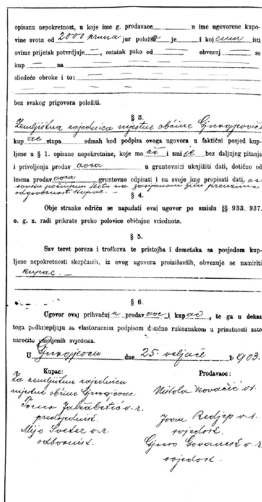 opisanu nepokretnost, u koje ime g. prodavaoc u ime ugovorene kupo-
vine svota od 2000 kruna jur položio je i koj ishi isti
ovime prijetak potvrdjuje —, ostatak poko od — obvezuj — se
kup — na —
sliedeće obroke i to:
bez svakog prigovora položiti.
§ 3.
Zemljištna zajednica mjestne obćine Gjurgjevac
kupac stupa odmah kod podpisa ovoga ugovora u faktični posjed kup-
ljene u § 1. opisane nepokretnine, koje mo i smije bez daljnjeg pitanja
i privoljenja prodav u gruntovnici uknjižiti dati, dotično od
imena prodav gruntovno odpisati i na svoje ime propisati dati,
§ 4.
Obje stranke odriču se napadati ovaj ugovor po smislu §§ 933. 937.
o. g. z. radi prikrate preko polovice običajne vriednote.
§ 5.
Sav teret poreza i troškova te pristojba i dometaka sa posjedom kup-
ljene nepokretnosti skopčanih, iz ovog ugovora proizlazećih, obvezuje se namiriti
kupac.
§ 6.
Ugovor ovaj prihvaćaju prodavaoc i kupac, te ga u dokaz
toga podkriepljuju sa vlastoručnim podpisom dotično rakoznakom u prisutnosti zato
naročito umoljenih svjedoka.
U Gjurgjevcu dne 25 veljače 1903.
Kupac:
Za zemljištnu zajednicu
mjestne obćine Gjurgjevac
predsjednik
Mijo v. r.
odbornik
Prodavaoc:
Nikola Kovačić v. r.
Jovan v. r.
svjedok.
Gjuro v. r.
svjedok.